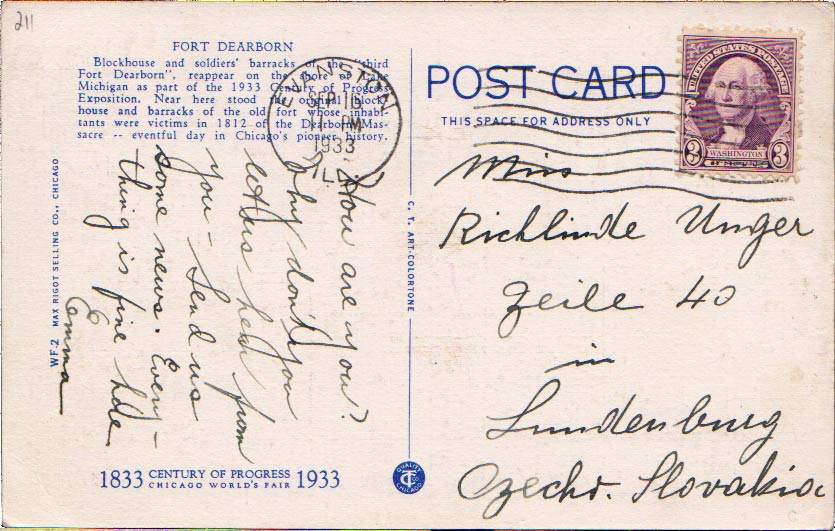 211
FORT DEARBORN
Blockhouse and soldiers' barracks of the "third
Fort Dearborn", reappear on the shore of Lake
Michigan as part of the 1933 Century of Progress
Exposition. Near here stood the original block-
house and barracks of the old fort whose inhabi-
tants were victims in 1812 of the Dearborn Mas-
sacre -- eventful day in Chicago's pioneer history.
EVANSTON
SEP 10
PM
1933
ILL.
You are you?
Why don't you
let us hear from
you - Send us
some news. Every-
thing is fine
Emma
WF.2 MAX RIGOT SELLING CO., CHICAGO
1833 CENTURY OF PROGRESS 1933
CHICAGO WORLD'S FAIR
C. T. ART-COLORTONE
QUALITY
CHICAGO
POST CARD
THIS SPACE FOR ADDRESS ONLY
UNITED STATES POSTAGE
3 WASHINGTON 3
Miss
Richlinde Unger
Zeile 40
in
Lundenburg
Czecho. Slovakia